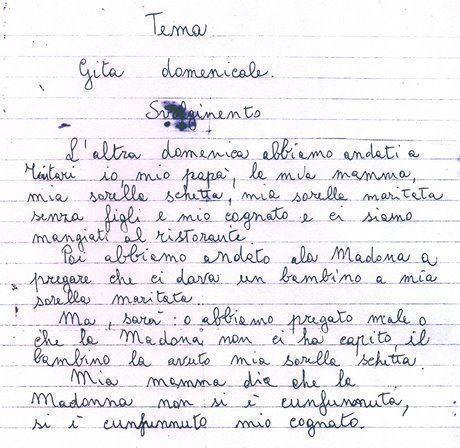 Tema
Gita domenicale.
Svolgimento
L'altra domenica abbiamo andati a
Tintari io, mio papà, la mia mamma,
mia sorella schetta, mia sorella maritata
senza figli e mio cognato e ci siamo
mangiati al ristorante.
Poi abbiamo andato ala Madona a
pregare che ci dava un bambino a mia
sorella maritata.
Ma, sarà: o abbiamo pregato male o
che la Madona non ci ha capito, il
bambino la avuto mia sorella schetta.
Mia mamma dia che la
Madonna non si è cunfunnuta,
si è cunfunnuto mio cognato.